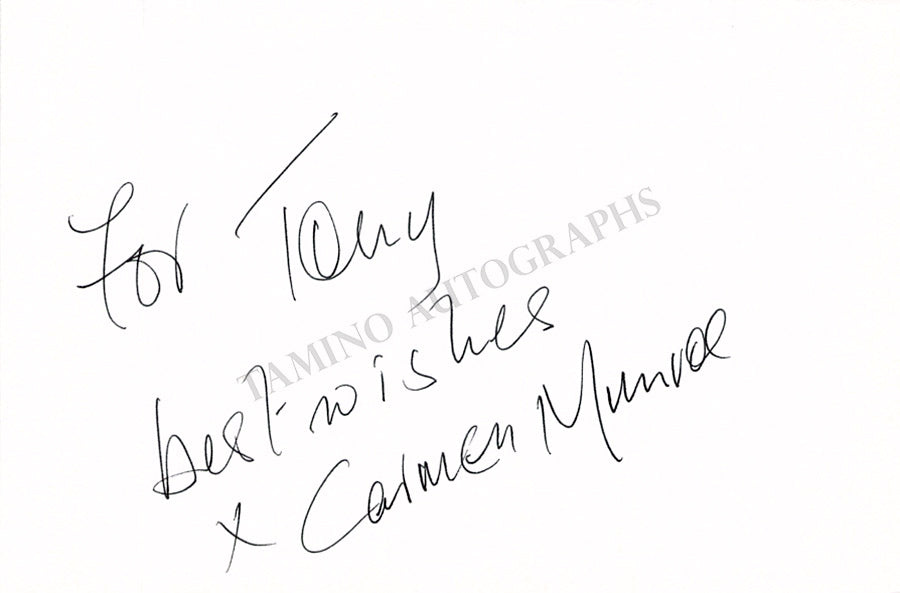 For Tony
best wishes
x Carmen Munroe
TAMINO AUTOGRAPHS